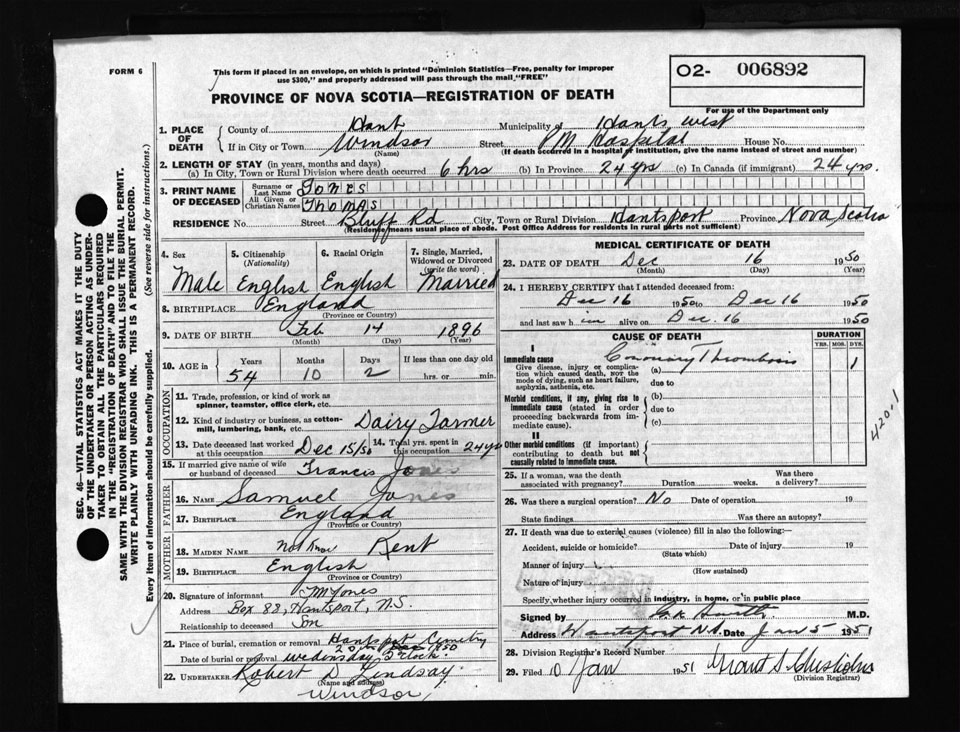 FORM 6
This form if placed in an envelope, on which is printed "Dominion Statistics—Free, penalty for improper
use $300," and properly addressed will pass through the mail "FREE"
O2- 006892
For use of the Department only
PROVINCE OF NOVA SCOTIA—REGISTRATION OF DEATH
SEC. 46—VITAL STATISTICS ACT MAKES IT THE DUTY
OF THE UNDERTAKER OR PERSON ACTING AS UNDER-
TAKER TO OBTAIN ALL THE PARTICULARS REQUIRED
IN THE "REGISTRATION OF DEATH" AND TO FILE THE
SAME WITH THE DIVISION REGISTRAR WHO SHALL ISSUE THE BURIAL PERMIT.
WRITE PLAINLY WITH UNFADING INK. THIS IS A PERMANENT RECORD.
Every item of information should be carefully supplied. (See reverse side for instructions.)
1. PLACE OF DEATH County of Hant Municipality of Hants West
If in City or Town Windsor Street PM Hospital House No.
(Name) (If death occurred in a hospital or institution, give the name instead of street and number)
2. LENGTH OF STAY (in years, months and days)
(a) In City, Town or Rural Division where death occurred 6 hrs (b) In Province 24 yrs (c) In Canada (if immigrant) 24 yrs.
3. PRINT NAME OF DECEASED Surname or Last Name Jones
All Given or Christian Names Thomas
RESIDENCE No. Street Bluff Rd City, Town or Rural Division Hantsport Province Nova Scotia
(Residence means usual place of abode. Post Office Address for residents in rural parts not sufficient)
4. Sex Male
5. Citizenship (Nationality) English
6. Racial Origin English
7. Single, Married, Widowed or Divorced (write the word) Married
8. BIRTHPLACE England
(Province or Country)
9. DATE OF BIRTH Feb 14 1896
(Month) (Day) (Year)
10. AGE in Years Months Days If less than one day old
54 10 2 hrs. or min.
OCCUPATION
11. Trade, profession, or kind of work as
spinner, teamster, office clerk, etc.
12. Kind of industry or business, as cotton-
mill, lumbering, bank, etc. Dairy Farmer
13. Date deceased last worked at this occupation Dec 15/50 14. Total yrs. spent in this occupation 24 yrs
15. If married give name of wife
or husband of deceased Francis Jones
FATHER
16. NAME Samuel Jones
17. BIRTHPLACE England
(Province or Country)
MOTHER
18. MAIDEN NAME Not Know Kent
19. BIRTHPLACE English
(Province or Country)
20. Signature of informant TM Jones
Address Box 88, Hantsport, N.S.
Relationship to deceased Son
21. Place of burial, cremation or removal Hantsport Cemetry
Date of burial or removal Wedensday, 20 Dec 1950 2 oclock
22. UNDERTAKER Robert D. Lindsay.
(Name and address)
Windsor,
MEDICAL CERTIFICATE OF DEATH
23. DATE OF DEATH Dec 16 1950
(Month) (Day) (Year)
24. I HEREBY CERTIFY that I attended deceased from:
Dec 16 1950 to Dec 16 1950
and last saw h im alive on Dec. 16 1950
CAUSE OF DEATH DURATION
YRS. MOS. DYS.
I
Immediate cause (a) Coronary Thrombosis 1
Give disease, injury or complica-
tion which caused death, NOT the
mode of dying, such as heart failure,
asphyxia, asthenia, etc.
due to
Morbid conditions, if any, giving rise to
immediate cause (stated in order
proceeding backwards from im-
mediate cause).
(b)
due to
(c)
II
Other morbid conditions (if important)
contributing to death but not
causally related to immediate cause.
420.1
25. If a woman, was the death
associated with pregnancy? Duration weeks. Was there
a delivery?
26. Was there a surgical operation? No Date of operation 19
State findings Was there an autopsy?
27. If death was due to external causes (violence) fill in also the following:—
Accident, suicide or homicide? Date of injury 19
(State which)
Manner of injury
(How sustained)
Nature of injury
Specify whether injury occurred in industry, in home, or in public place
Signed by G.K. Smith M.D.
Address Hantsport N.S. Date Jan 5 1951
28. Division Registrar's Record Number
29. Filed 10 Jan 1951 Grant S. Chisholm
(Division Registrar)